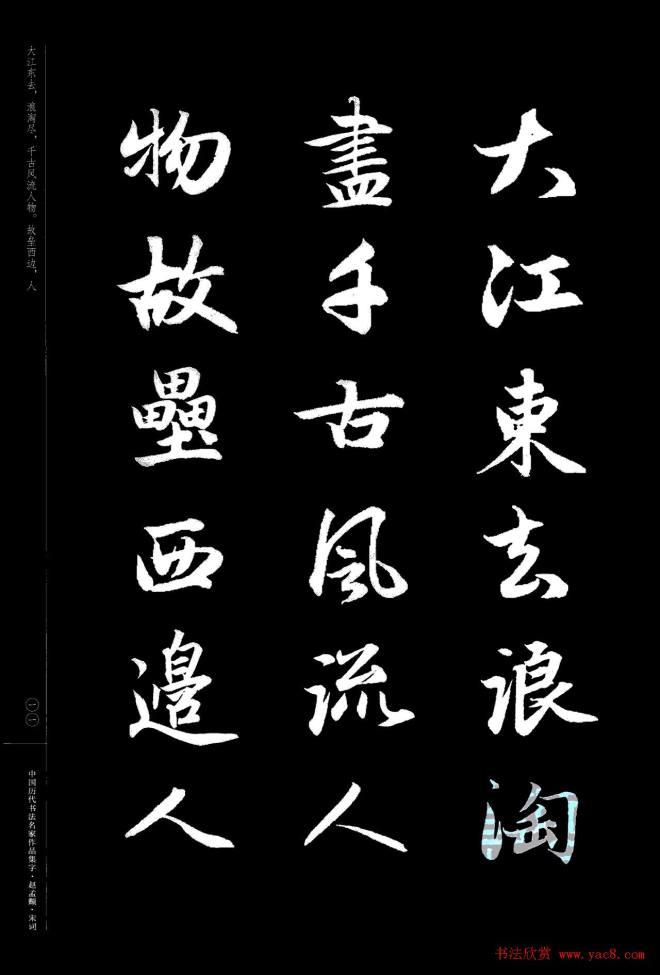 大江東去浪淘
盡千古風流人
物故壘西邊人
大江东去，浪淘尽，千古风流人物。故垒西边，人
中国历代书法名家作品集字·赵孟頫·宋词
书法欣赏 www.yac8.com